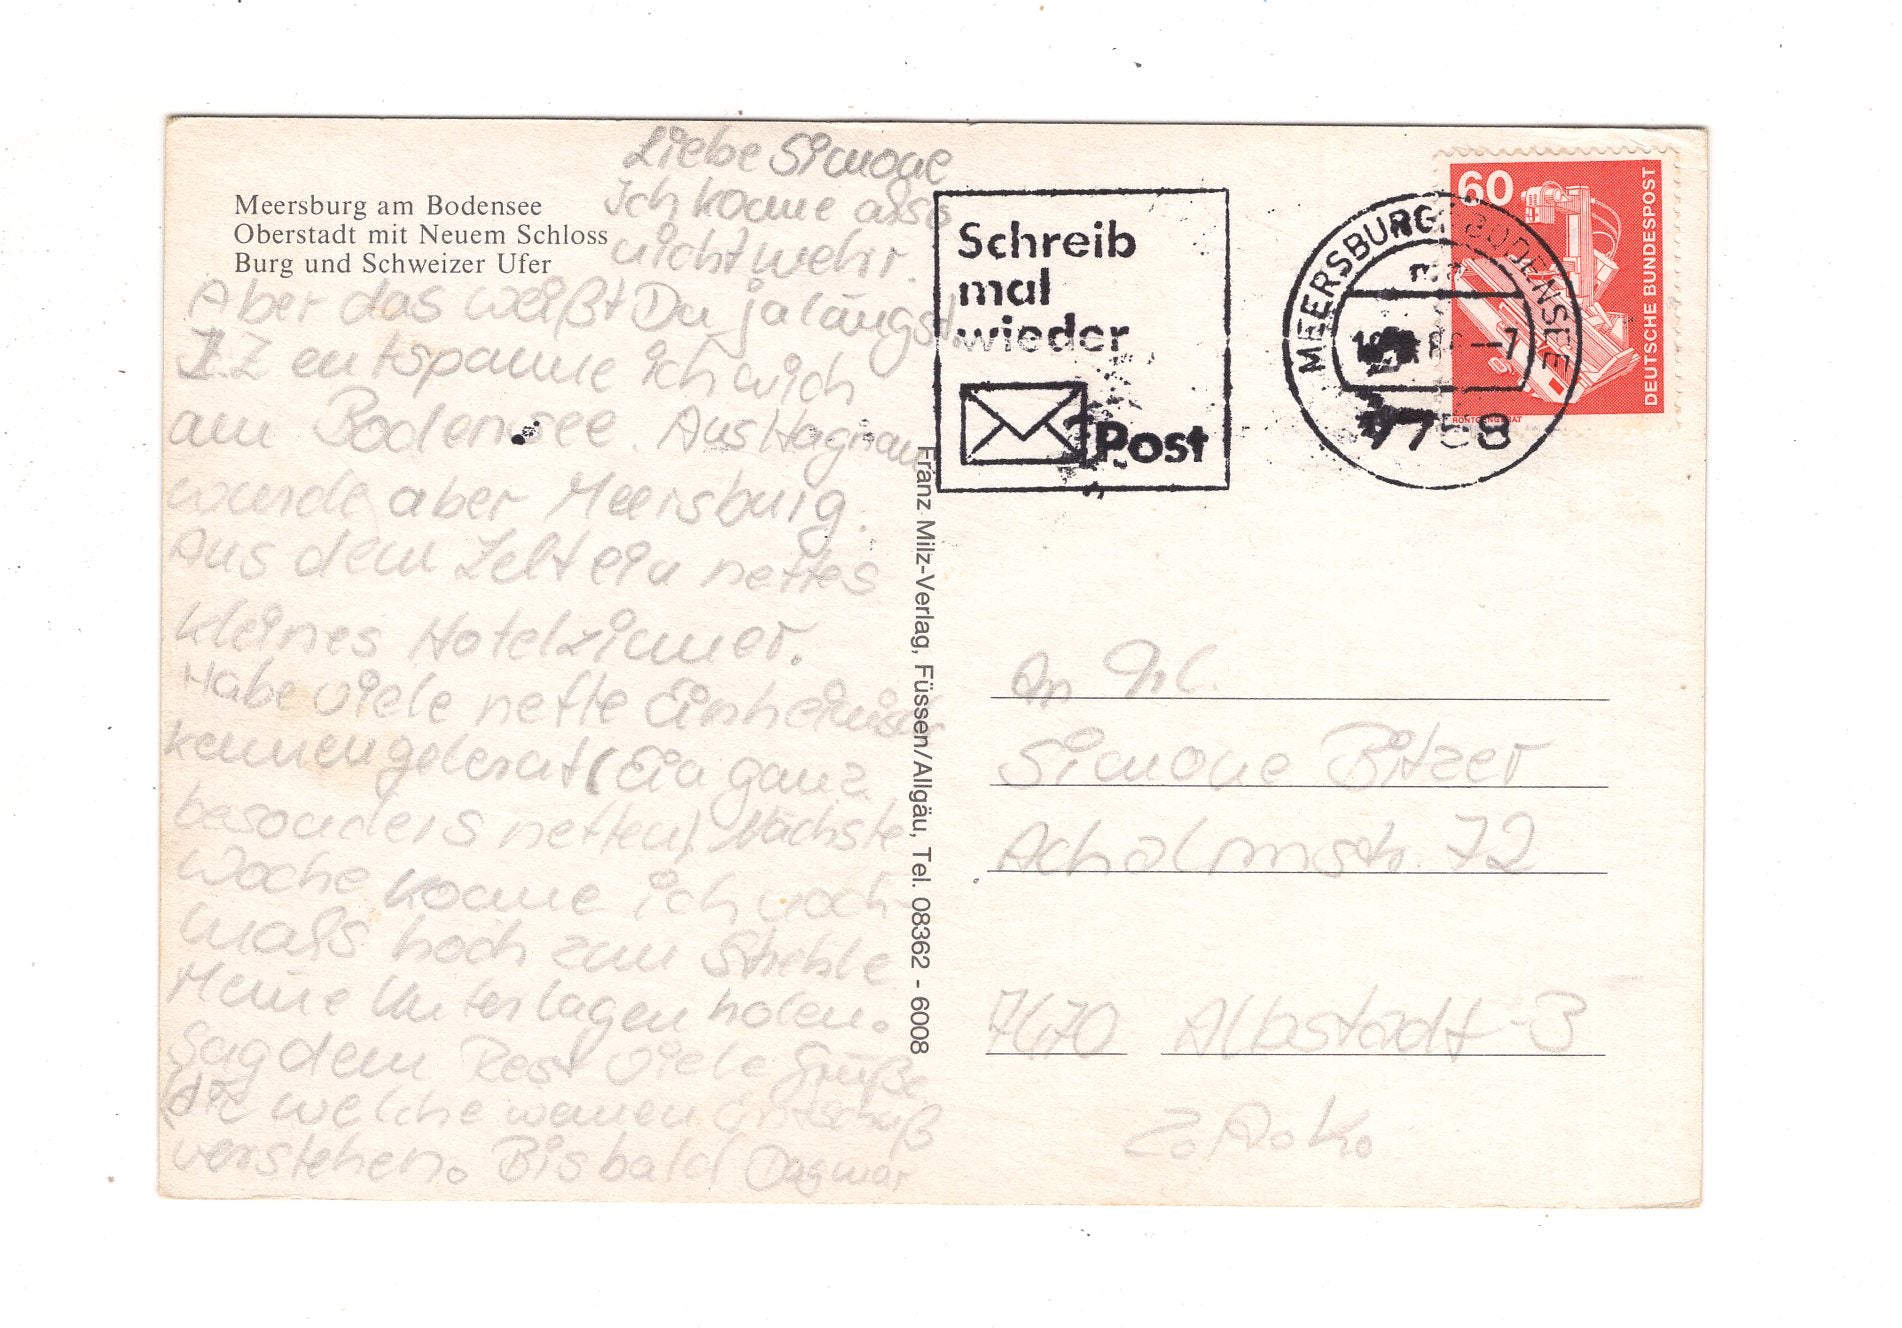 Liebe Simone
Ich komme also
nicht mehr.
Meersburg am Bodensee
Oberstadt mit Neuem Schloss
Burg und Schweizer Ufer
Aber das weißt Du ja längst.
Z Z entspanne ich mich
am Bodensee. Aus Hagnau
wurde aber Meersburg.
Aus dem Zelt ein nettes
kleines Hotelzimmer.
Habe viele nette
kennengelernt (Ein ganz
besonders netten) Nächste
Woche komme ich noch-
mals hoch zum Strehle
Meine Unterlagen holen.
Sag dem Rest viele Grüße
verstehen. Bis bald Dagmar
Franz Milz-Verlag, Füssen/Allgäu, Tel. 08362 - 6008
Schreib
mal
wieder
Post
MEERSBURG, BODENSEE
7758
60
DEUTSCHE BUNDESPOST
RÖNTGENGERÄT
An Frl.
Simone Bitzer
Achalmstr. 72
7470 Albstadt-3